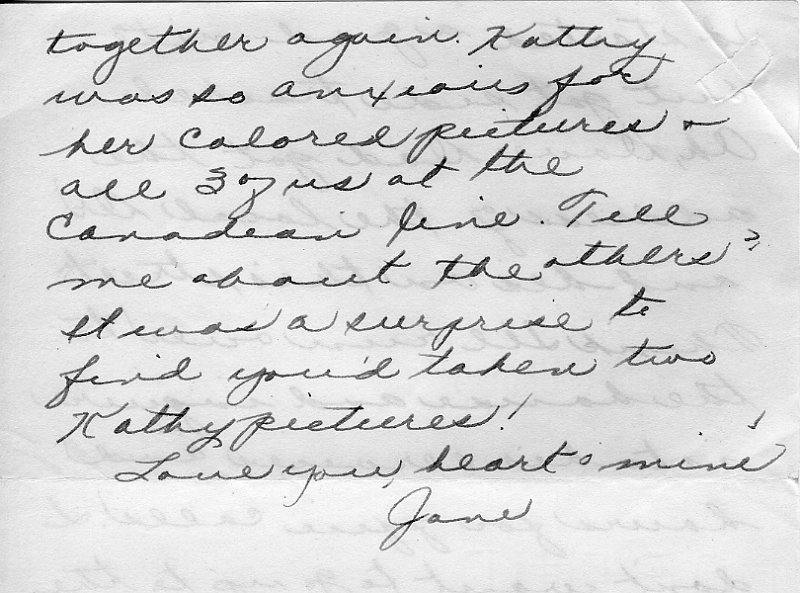 together again. Kathy
was so anxious for
her colored pictures &
all 3 of us at the
Canadian line. Tell
me about the others?
It was a surprise to
find you'd taken two
Kathy pictures!
Love you, heart o mine!
Jane